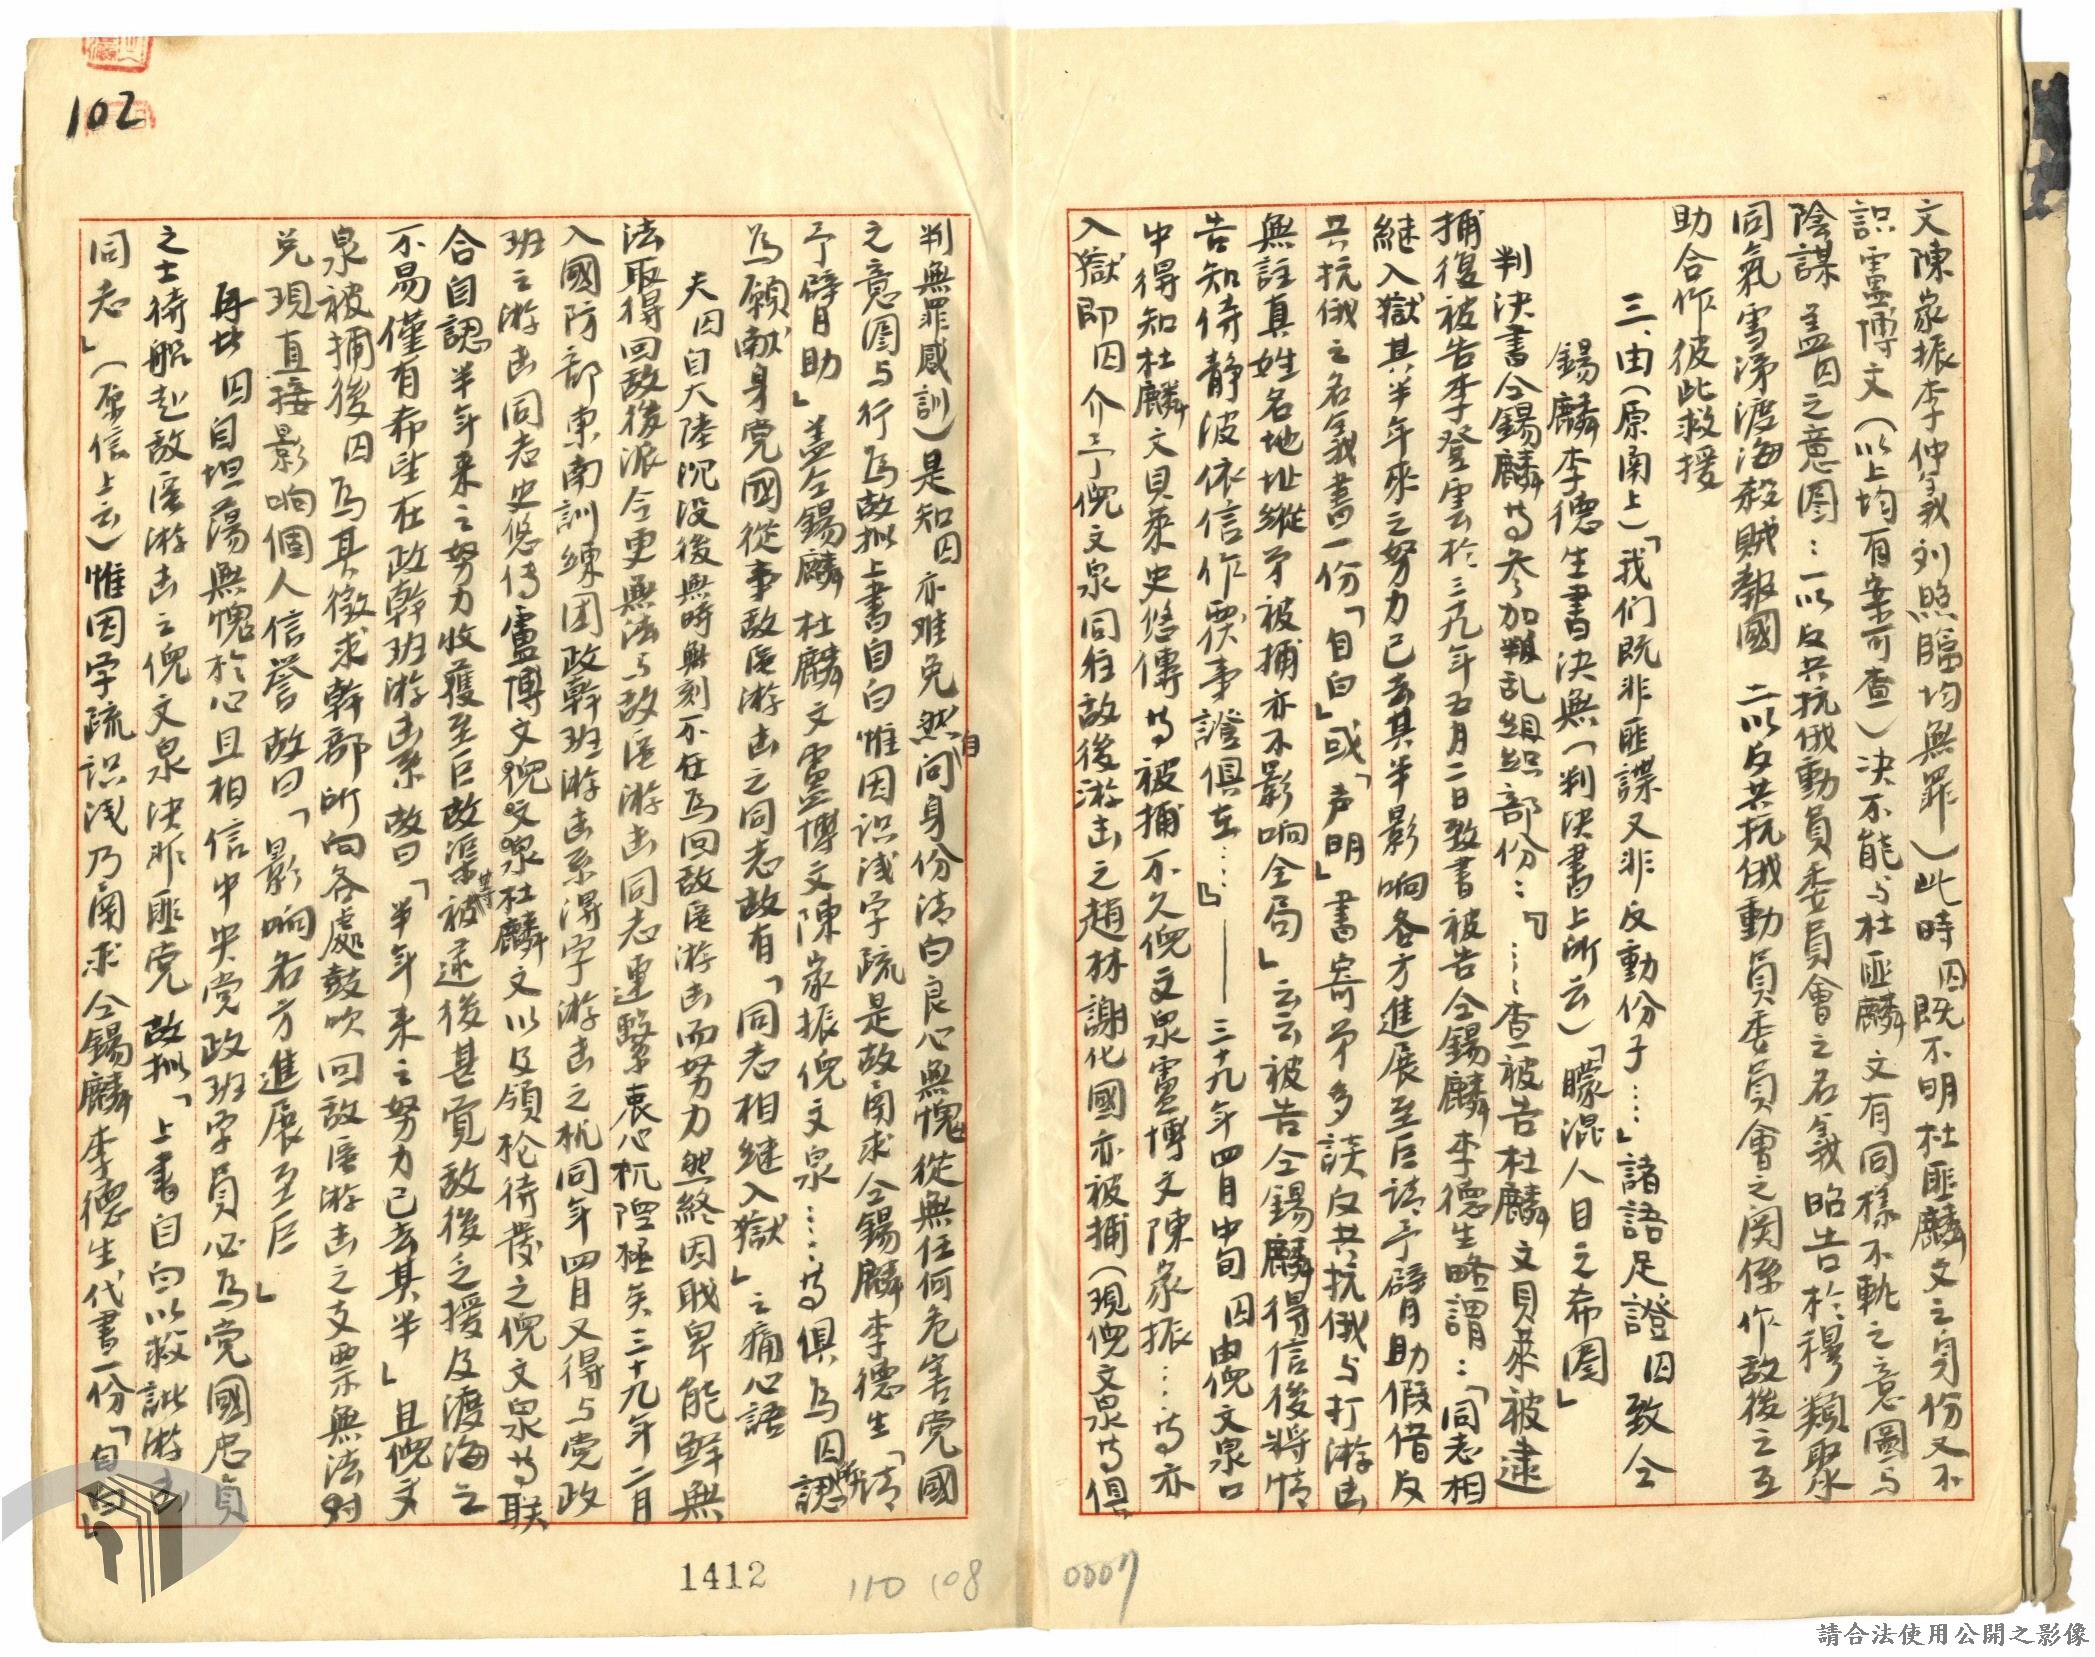 文陳家振李仲義刘照臨均無罪）此時囚既不明杜匪麟文之身份又不
識盧博文（以上均有案可查）决不能与杜匪麟文有同樣不軌之意圖与
陰謀　盖囚之意圖：一以反共抗俄動員委員會之名義昭告於穆類聚
同氣雪涕渡海殺賊報國　二以反共抗俄動員委員會之関係作敌後之互
助合作彼此救援
三、由（原南上）「我们既非匪諜又非反動份子‥‥」諸語足證囚致仝
錫麟李德生書决無（判决書上所云）「矇混人目之希圖」
判决書仝錫麟等参加叛乱組織部份：『‥‥查被告杜麟文貝萊被逮
捕後被告李登雲於三九年五月二日致書被告仝錫麟李德生略謂：「同志相
継入獄其半年來之努力已去其半影响各方進展至巨請予臂助假借反
共抗俄之名義書一份「自白」或「声明」書寄弟多談反共抗俄与打游击
無註真姓名地址縱弟被捕亦不影响全局」云云被告仝錫麟得信後将情
告知侍静波依信作覆事證俱在‥‥』——三十九年四月中旬囚由倪文泉口
中得知杜麟文貝萊史悠傳等被捕不久倪文泉盧博文陳家振‥‥等亦
入獄即囚介予倪文泉同往敌後游击之趙林謝化國亦被捕（現倪文泉等俱
判無罪感訓）是知囚亦难免然自问身份清白良心無愧從無任何危害党國
之意圖与行為故拟上書自白惟因识浅字疏是故函求仝錫麟李德生「請
予臂助」盖仝錫麟杜麟文盧博文陳家振倪文泉‥‥等俱為囚所認
為願献身党國從事敌區游击之同志故有「同志相継入獄」之痛心語
夫囚自大陸沉没後無時無刻不在為回敌區游击而努力然終因职卑能鮮無
法取得回敌後派令更無法与敌區游击同志連繫衷心杌隉極矣三十九年二月
入國防部東南訓練团政幹班游击系深字游击之机同年四月又得与党政
班之游击同志史悠傳盧博文倪文泉杜麟文以及領枪待發之倪文泉等联
合自認半年来之努力收獲至巨故梁等被逮後甚覚敌後之援及渡海之
不易僅有希望在政幹班游击系故曰「半年来之努力已去其半」且倪文
泉被捕後囚為其徵求幹部所向各處鼓吹回敌區游击之支票無法对
兑現直接影响個人信誉故曰「影响各方進展至巨」
再此囚自坦蕩無愧於心且相信中央党政班学員必為党國忠貞
之士待船赴敌區游击之倪文泉决非匪党故拟「上書自白以救訛游击
同志」（原信上云）惟因字疏识浅乃函求仝錫麟李德生代書一份「自白」
102
1412
110 108
0007
請合法使用公開之影像